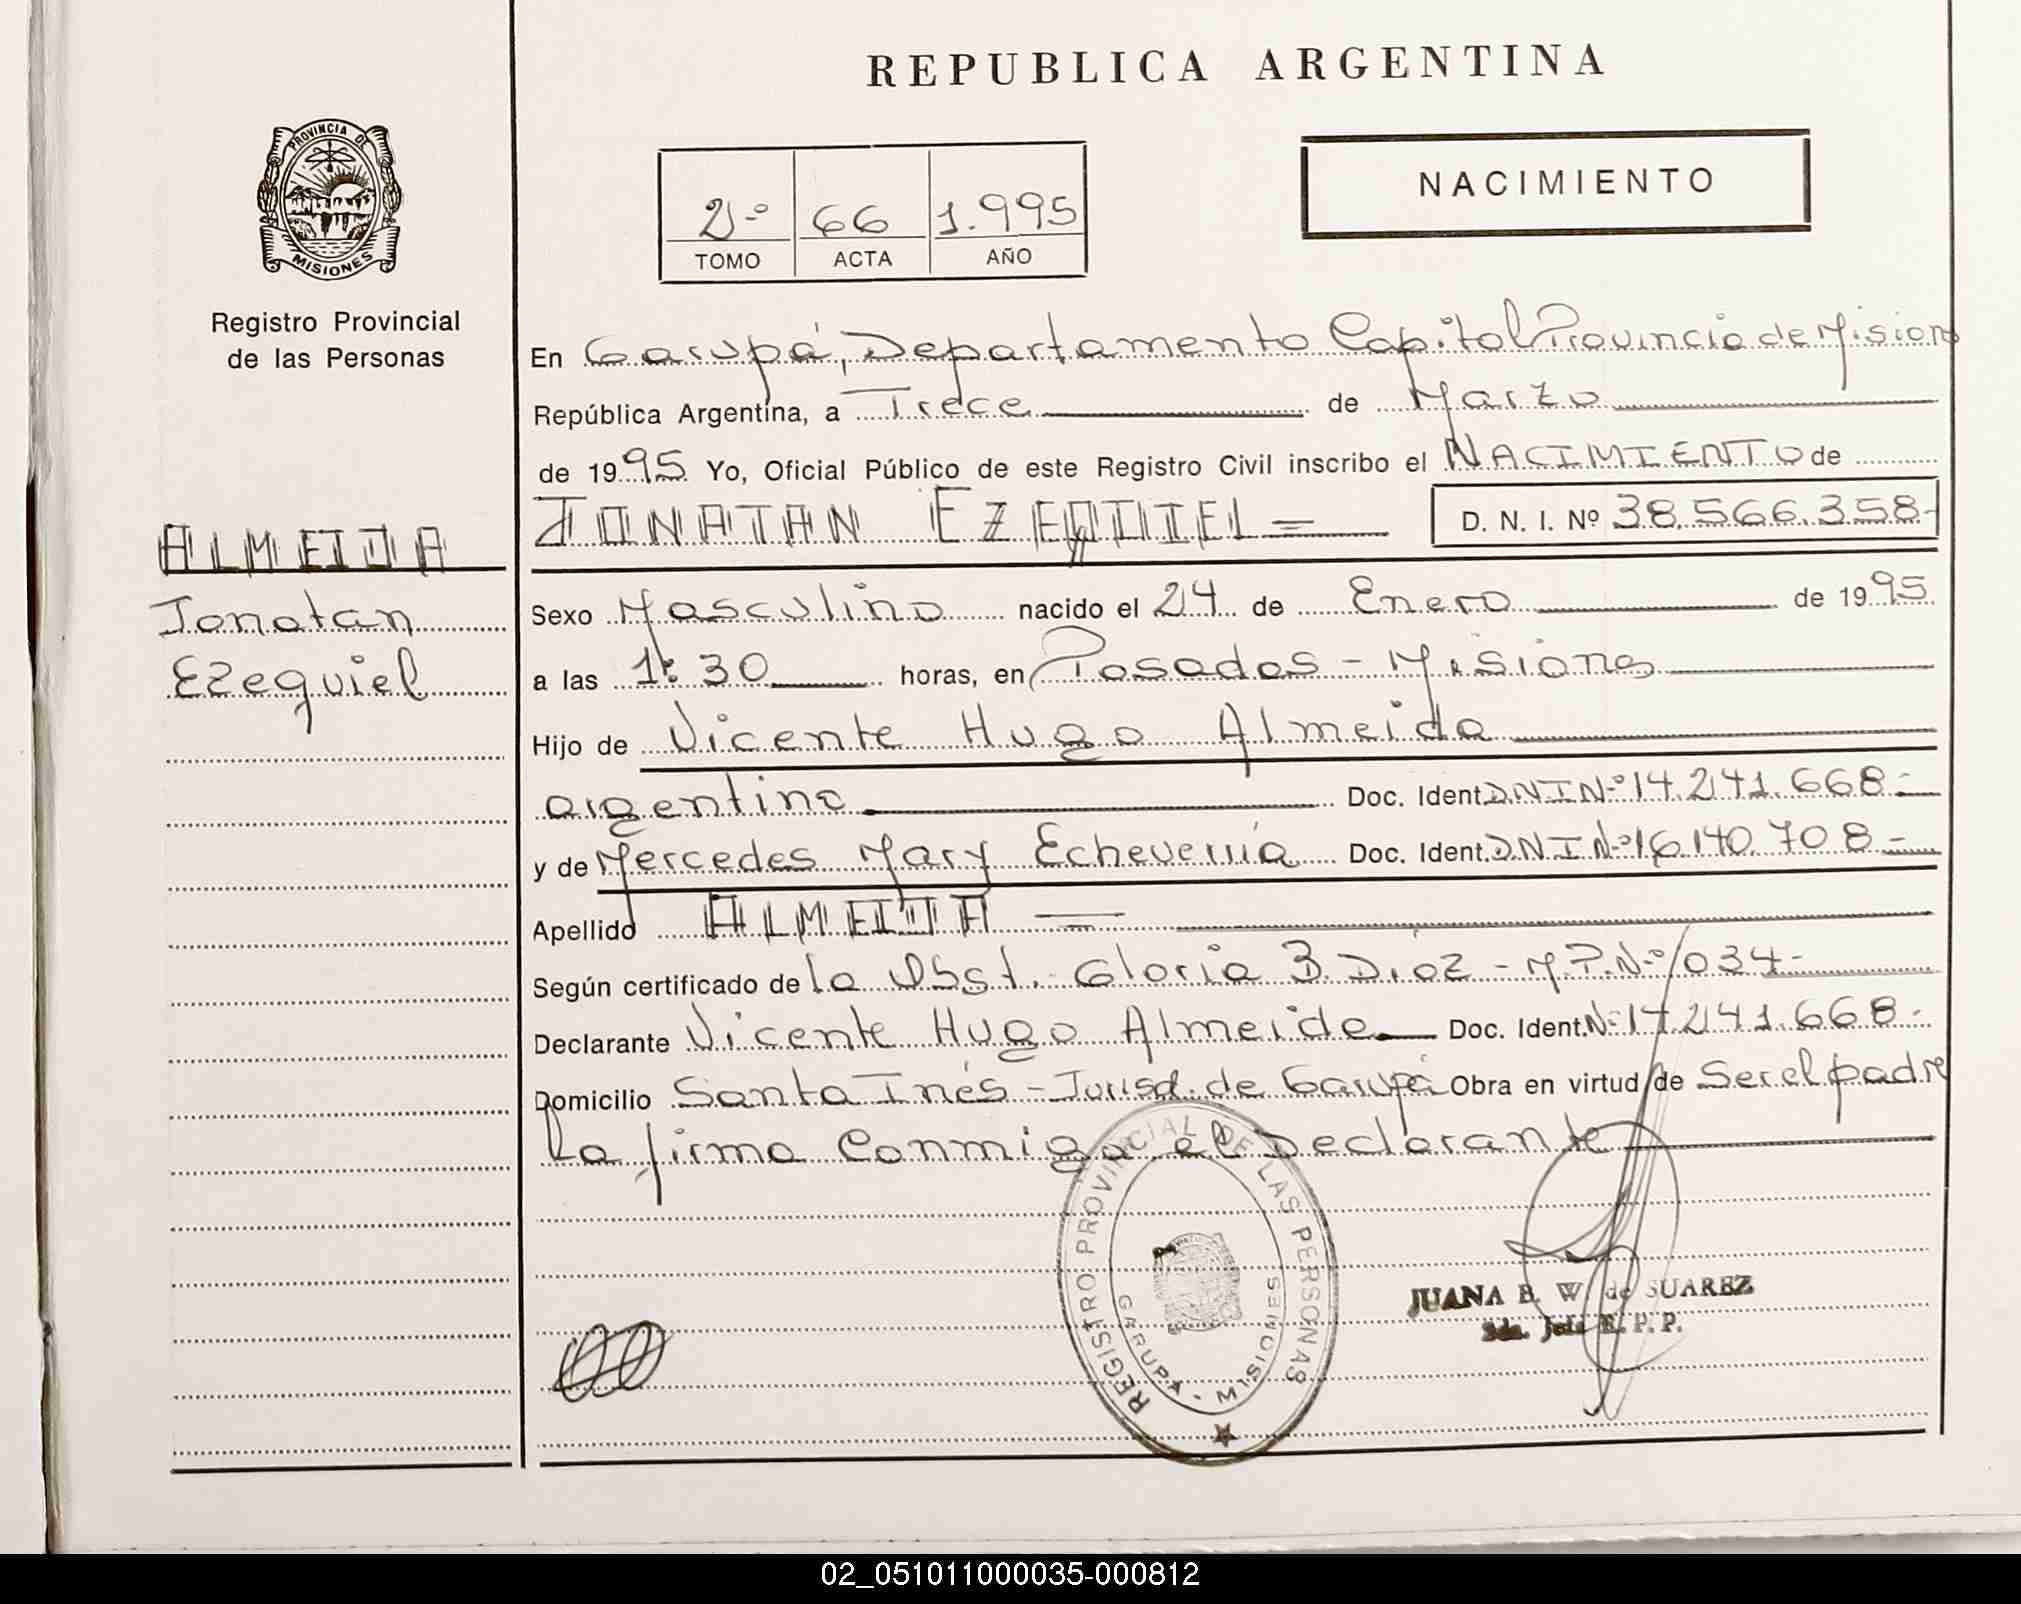 REPUBLICA ARGENTINA
PROVINCIA DE
MISIONES
Registro Provincial
de las Personas
2º 66 1.995
TOMO ACTA AÑO
NACIMIENTO
En Garupá, Departamento Capital Provincia de Misiones
República Argentina, a Trece de Marzo
de 1995 Yo, Oficial Público de este Registro Civil inscribo el NACIMIENTO de
JONATAN EZEQUIEL = D. N. I. Nº 38.566.358-
ALMEIDA
Jonatan
Ezequiel
Sexo Masculino nacido el 24 de Enero de 1995
a las 1:30 horas, en Posadas - Misiones
Hijo de Vicente Hugo Almeida
argentino Doc. Ident. DNI Nº 14.241.668=
y de Mercedes Mary Echeverría Doc. Ident. DNI Nº 16.140.708=
Apellido ALMEIDA
Según certificado de la Obst. Gloria B. Díaz - M.P.Nº 1034-
Declarante Vicente Hugo Almeida Doc. Ident. Nº 14.241.668-
Domicilio Santa Inés - Jurisd. de Garupá Obra en virtud de Ser el padre
La firma Conmigo el Declarante
REGISTRO PROVINCIAL DE LAS PERSONAS
GARUPA - MISIONES
JUANA B. W. de SUAREZ
Sda. Jefa R. P. P.
02_051011000035-000812